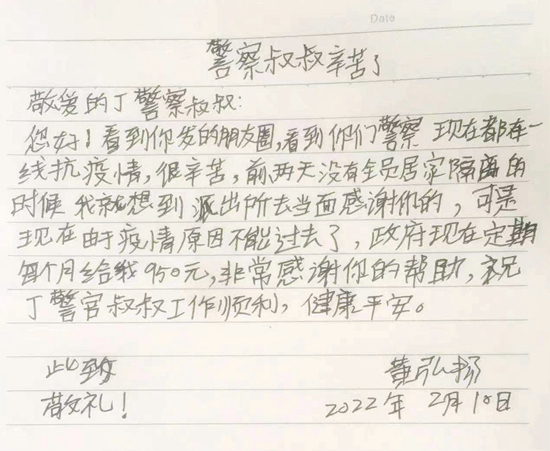 Date
警察叔叔辛苦了
敬爱的丁警察叔叔：
您好！看到你发的朋友圈，看到你们警察现在都在一
线抗疫情，很辛苦，前两天没有全员居家隔离的
时候我就想到派出所去当面感谢你的，可是
现在由于疫情原因不能过去了，政府现在定期
每个月给我950元，非常感谢你的帮助，祝
丁警官叔叔工作顺利，健康平安。
此致
黄弘扬
敬礼！
2022年2月10日